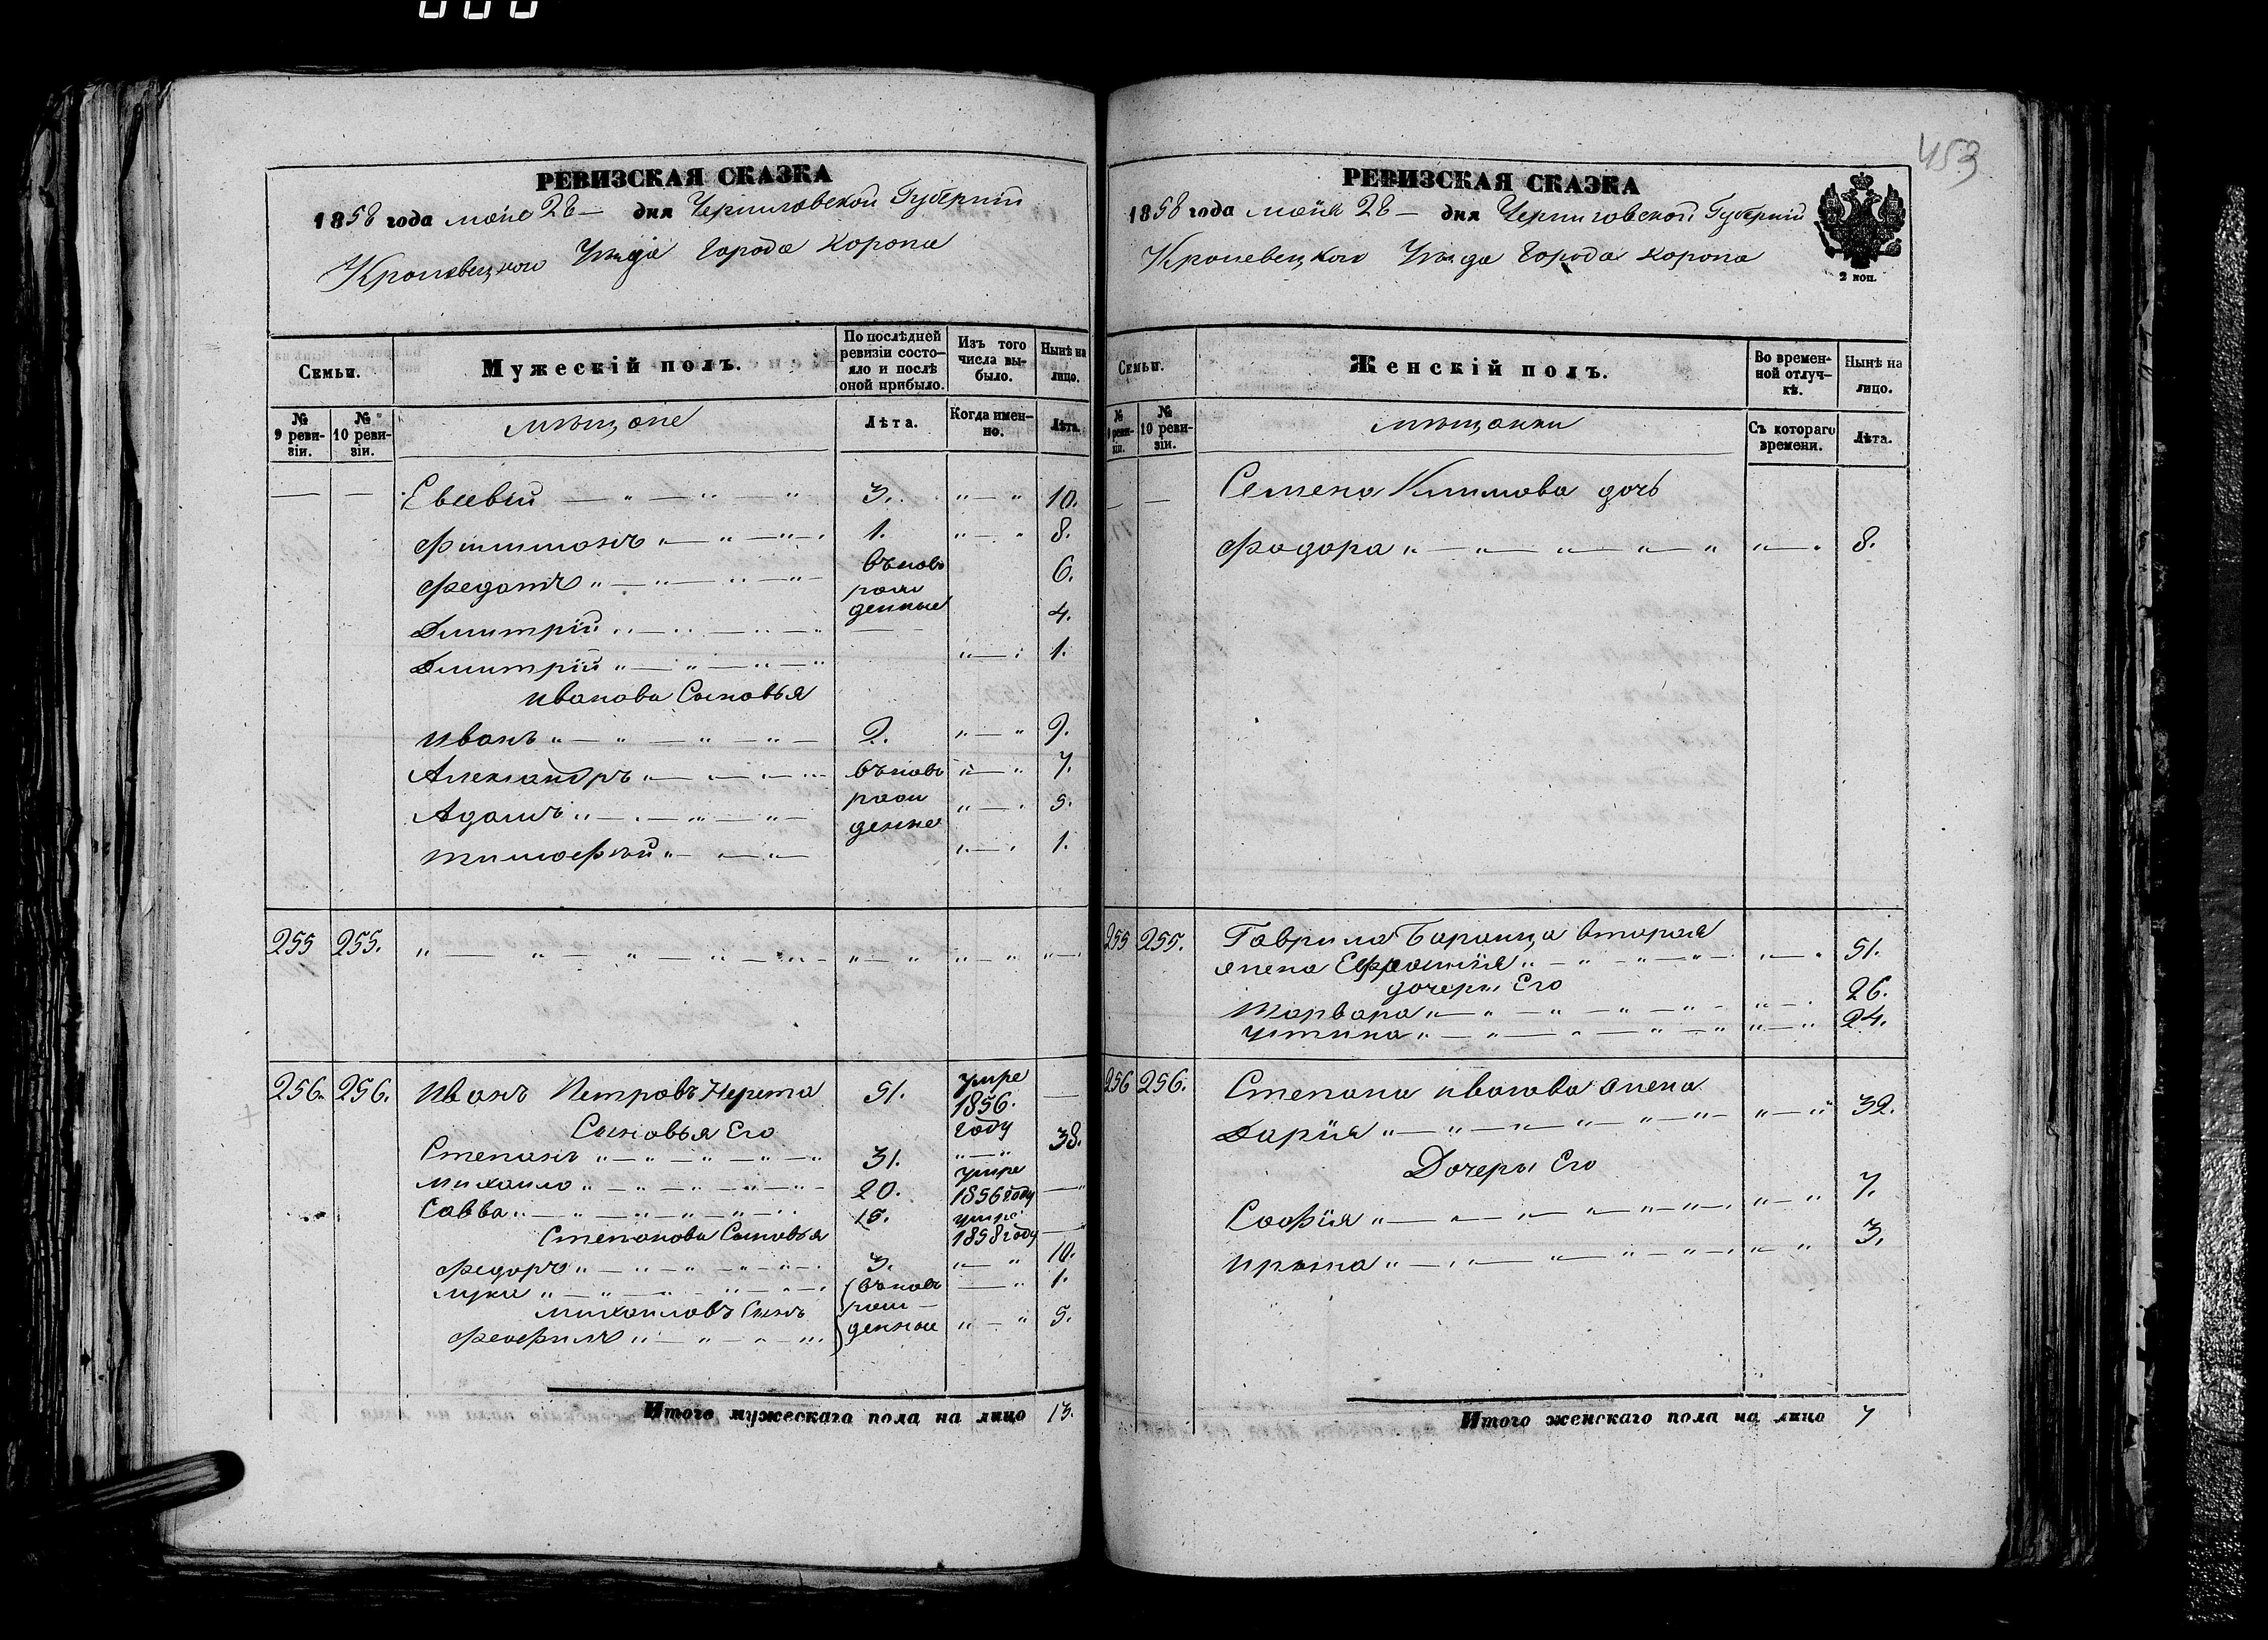 453
РЕВИЗСКАЯ СКАЗКА
1858 года маія 28 — дня Черниговской Губерніи
Кролевецкого Уезда Города Коропа
Семьи.
Мужескій полъ.
По послѣдней ревизіи состояло и послѣ оной прибыло.
Изъ того числа выбыло.
Нынѣ на лицо.
№ 9 ревизіи.
№ 10 ревизіи.
мещане
Лѣта.
Когда именно.
Лѣта.
— — Евсевій — " — " — " 3. " — " 10.
Филимонъ " — " — " — 1. " — " 8.
Федотъ " — " — " — " — въновь рожденные 6.
Дмитрій " — " — " — " 4.
Дмитрій " — " — " — " " — " 1.
Иванова Сыновья
Иванъ " — " — " — " — 2. " — " 9.
Александръ " — " — " — въновь " — " 7.
Адамъ " — " — " — рож " — " 5.
Тимофей " — " — денные " — " 1.
255 255. " — " — " — " — " — " — " " — " " — "
256. 256. Иванъ Петровъ Нерета 51. умре 1856. году —
Сыновья Его
Степанъ " — " — " — " — " 31. " — " 38.
Михаило " — " — " — " — 20. умре 1856 году — "
Савва " — " — " — " — " 15. умре 1858 году —
Степанова Сыновья
Федоръ " — " — " — " — 3. " — " 10.
Лука " — " — " — " — въновь — " 1.
Михаиловъ Сынъ рож —
Феофилъ " — " — " — " денные " — " 5.
Итого мужескаго пола на лицо 13.
РЕВИЗСКАЯ СКАЗКА
1858 года маія 28 — дня Черниговской Губерніи
Кролевецкого Уезда Города Коропа
2 коп.
Семьи.
Женскій полъ.
Во временной отлучкѣ.
Нынѣ на лицо.
№ 9 ревизіи.
№ 10 ревизіи.
мещанки
Съ котораго времени.
Лѣта.
— — Семена Климова дочь
Федора " — " — " — " — " " — " 8.
255 255. Гаврила вторая
жена Ефросинія " — " — " — " — " — " 51.
дочери Его
Варвара " — " — " — " — " — " — " 26.
Устина " — " — " — " — " " — " 24.
256 256. Степана Иванова жена
Дарія " — " — " — " — " — " — " — " 32.
Дочери Его
Софія " — " — " — " — " — " — " 7.
Ирина " — " — " — " — " — " — " 3.
Итого женскаго пола на лицо 7